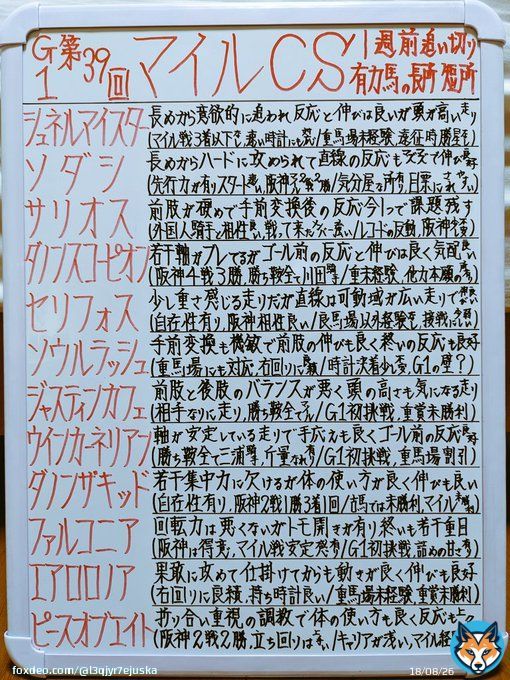 G1 第39回 マイルCS 1週前追い切り
有力馬の長所・短所
シュネルマイスター 長めから意欲的に追われ反応と伸びは良いが頭が高い走り
(マイル戦3着以下を 速い時計にも /重馬場未経験、遠征時勝星
ソダシ 長めからハードに攻められて直線の反応も 伸び
(先行力が有りスタート 阪神 /気分屋な所有り、目標にされ
サリオス 前肢が硬めで手前変換後の反応今1つで課題残す
(外国人騎手と相性良い、 /レコードの反動、阪神
ダノンスコーピオン 若干軸がブレてるがゴール前の反応と伸びは良く気配良い
(阪神4戦3勝、勝ち鞍全て川田 /重未経験、他力本願の
セリフォス 少し重さ感じる走りだが直線は可動域が広い走りで
(自在性有り、阪神相性良い/良馬場以外経験 接戦に
ソウルラッシュ 手前変換も機敏で前肢の伸びも良く終いの反応も良
(重馬場にも対応、右回りに良 /時計決着少し 、G1の壁?)
ジャスティンカフェ 前肢と後肢のバランスが悪く頭の高さも気になる走り
(相手なりに走り、勝ち鞍全て /G1初挑戦、重賞未勝利)
ウインカーネリアン 軸が安定している走りで手応えも良くゴール前の反応も
(勝ち鞍全て三浦 、斤量なれ /G1初挑戦、重馬場割引)
ダノンザキッド 若干集中力に欠けるが体の使い方が良く伸びも良い
(自在性有り、阪神2戦1勝3着1回/古馬では未勝利、マイル
ファルコニア 回転力は悪くないがトモ開きが有り終いも若干重目
(阪神は得意、マイル戦安定 /G1初挑戦、詰めの甘さ
エアロロノア 果敢に攻めて仕掛けてからも動きが良く伸びも良好
(右回りに良績、持ち時計良い/重馬場未経験、重賞未勝利)
ピースオブエイト 折り合い重視の調教で体の使い方も良く反応も
(阪神2戦2勝、立ち回りは /キャリアが浅い、マイル
foxdeo.com/@l3qjyr7ejuska
18/08/26